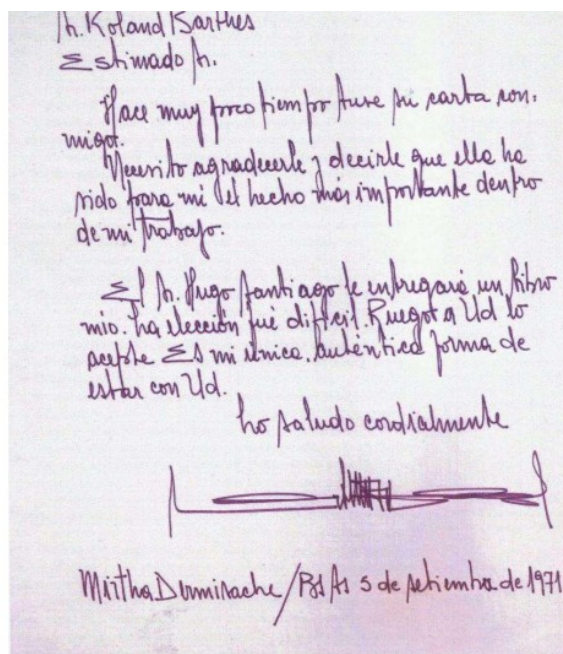 Sr. Roland Barthes
Estimado Sr.
Hace muy poco tiempo tuve su carta con-
migo.
Necesito agradecerle y decirle que ella ha
sido para mi el hecho más importante dentro
de mi trabajo.
El Sr. Hugo Santiago le entregará un libro
mio. La elección fué dificil. Ruego a Ud lo
acepte. Es mi única, auténtica forma de
estar con Ud.
Lo saludo cordialmente
Mirtha Dermisache / Bs As 5 de setiembre de 1971